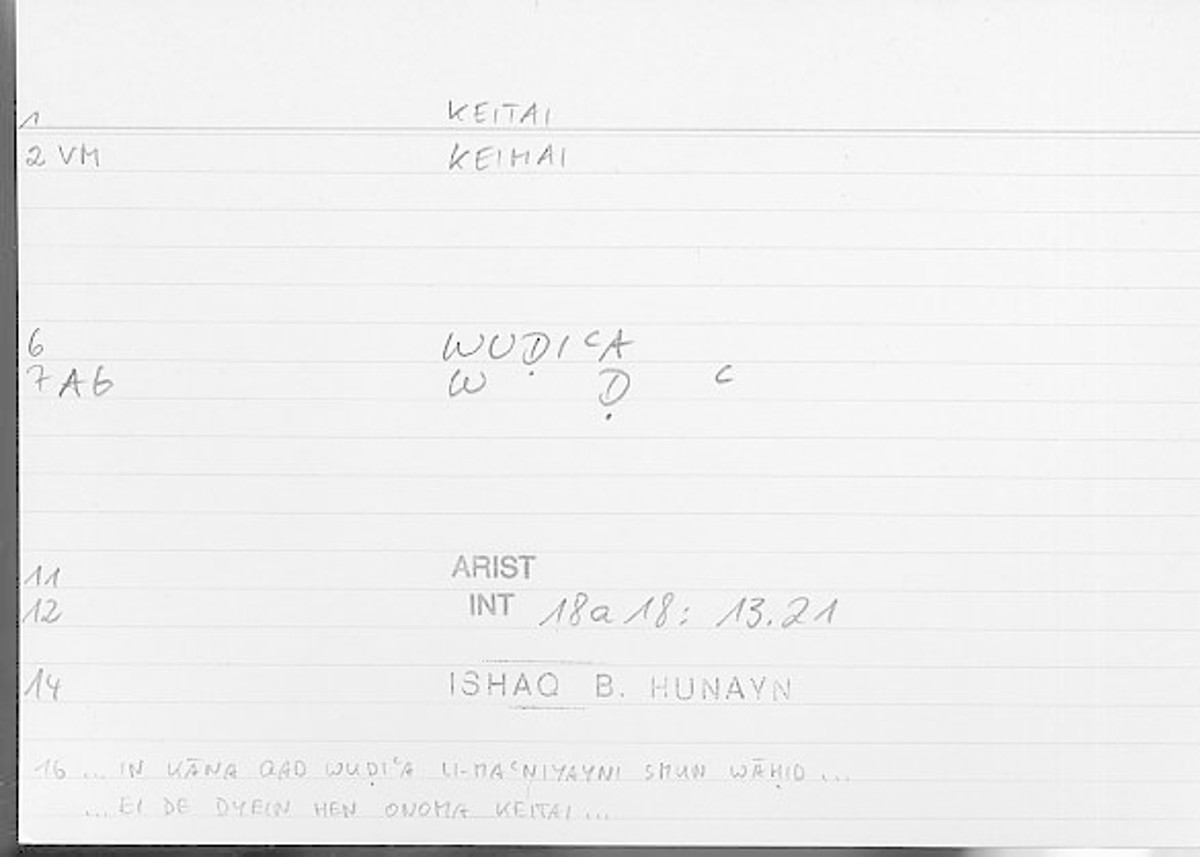 1 KEITAI
2 VM KEIMAI
6 WUḌIᶜA
7 AG W Ḍ ᶜ
11 ARIST
12 INT 18a18: 13.21
14 ISHAQ B. HUNAYN
16 ... IN KĀNA QAD WUḌIᶜA LI-MAᶜNIYAYNI SMUN WĀḤID ...
... EI DE DYEIN HEN ONOMA KEITAI ...